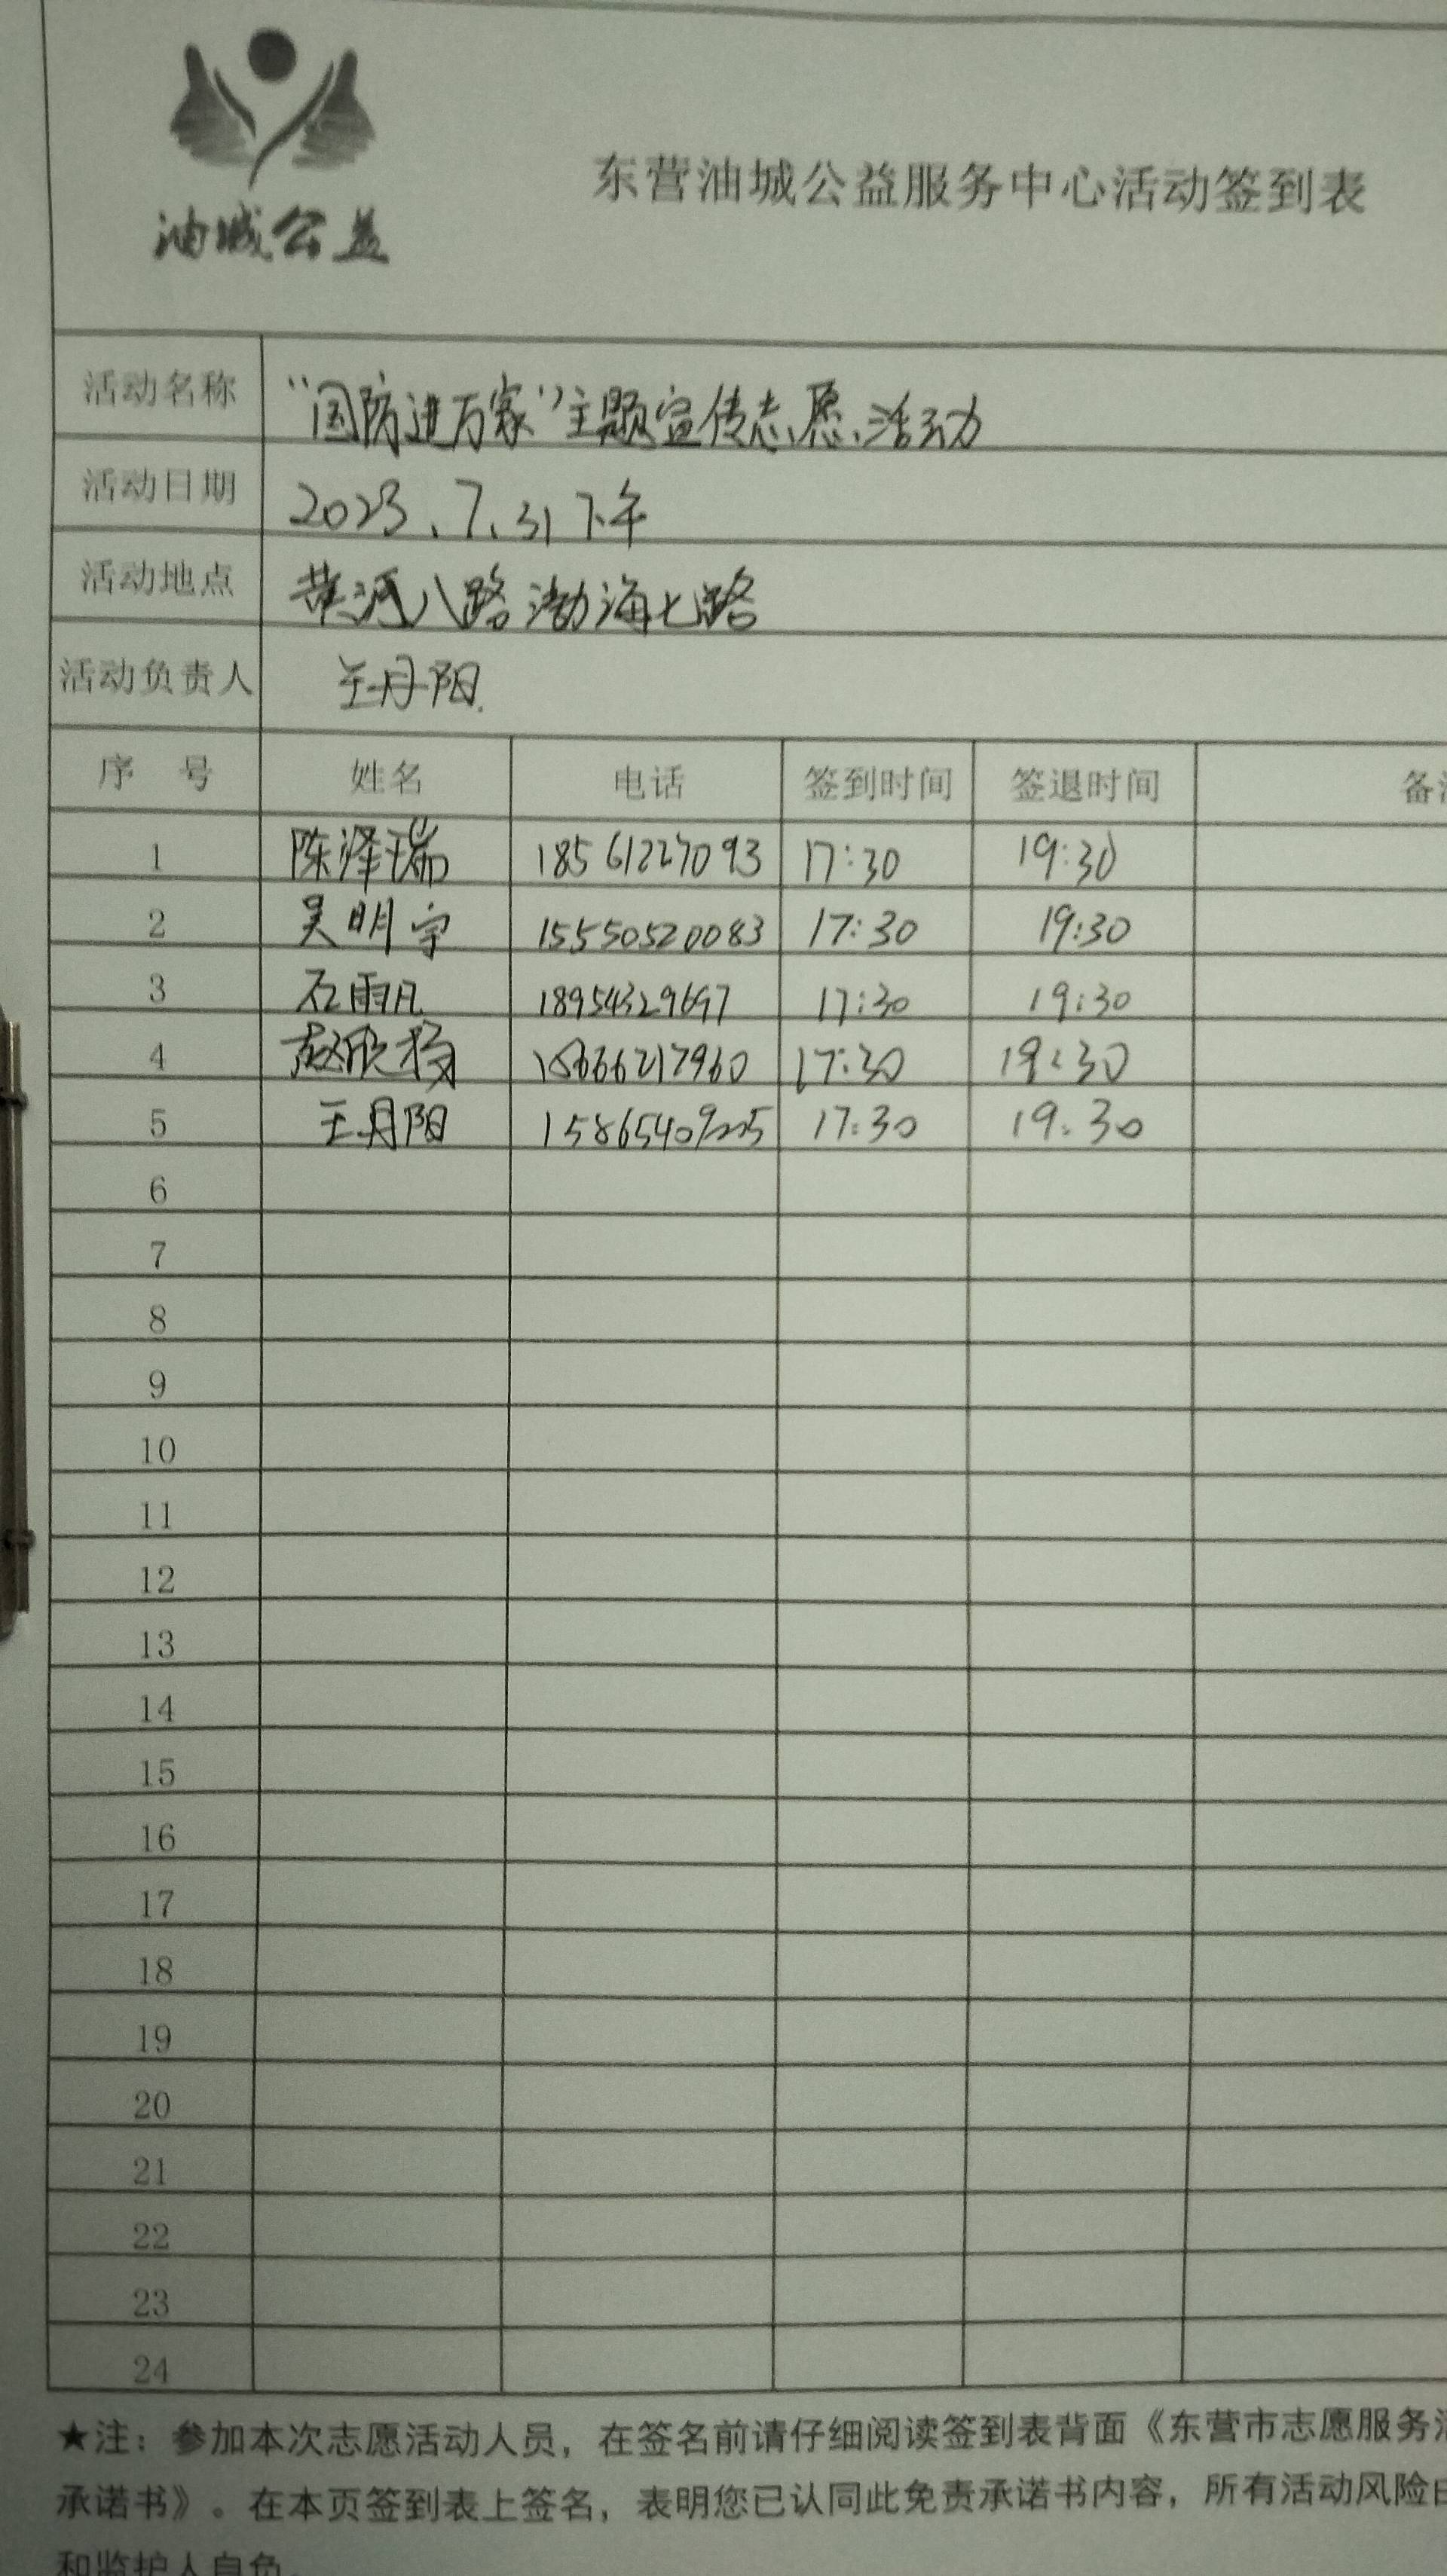 油城公益
东营油城公益服务中心活动签到表
活动名称 “国防进万家”主题宣传志愿活动
活动日期 2023、7、31 下午
活动地点 黄河八路渤海七路
活动负责人 王丹阳
序 号 姓名 电话 签到时间 签退时间 备
1 陈泽瑞 18561227093 17:30 19:30
2 吴明宇 15550520083 17:30 19:30
3 石雨凡 18954329697 17:30 19:30
4 赵欣扬 18666217960 17:30 19:30
5 王丹阳 17:30 19:30
6
7
8
9
10
11
12
13
14
15
16
17
18
19
20
21
22
23
24
★注：参加本次志愿活动人员，在签名前请仔细阅读签到表背面《东营市志愿服务
承诺书》。在本页签到表上签名，表明您已认同此免责承诺书内容，所有活动风险由
和监护人自负。